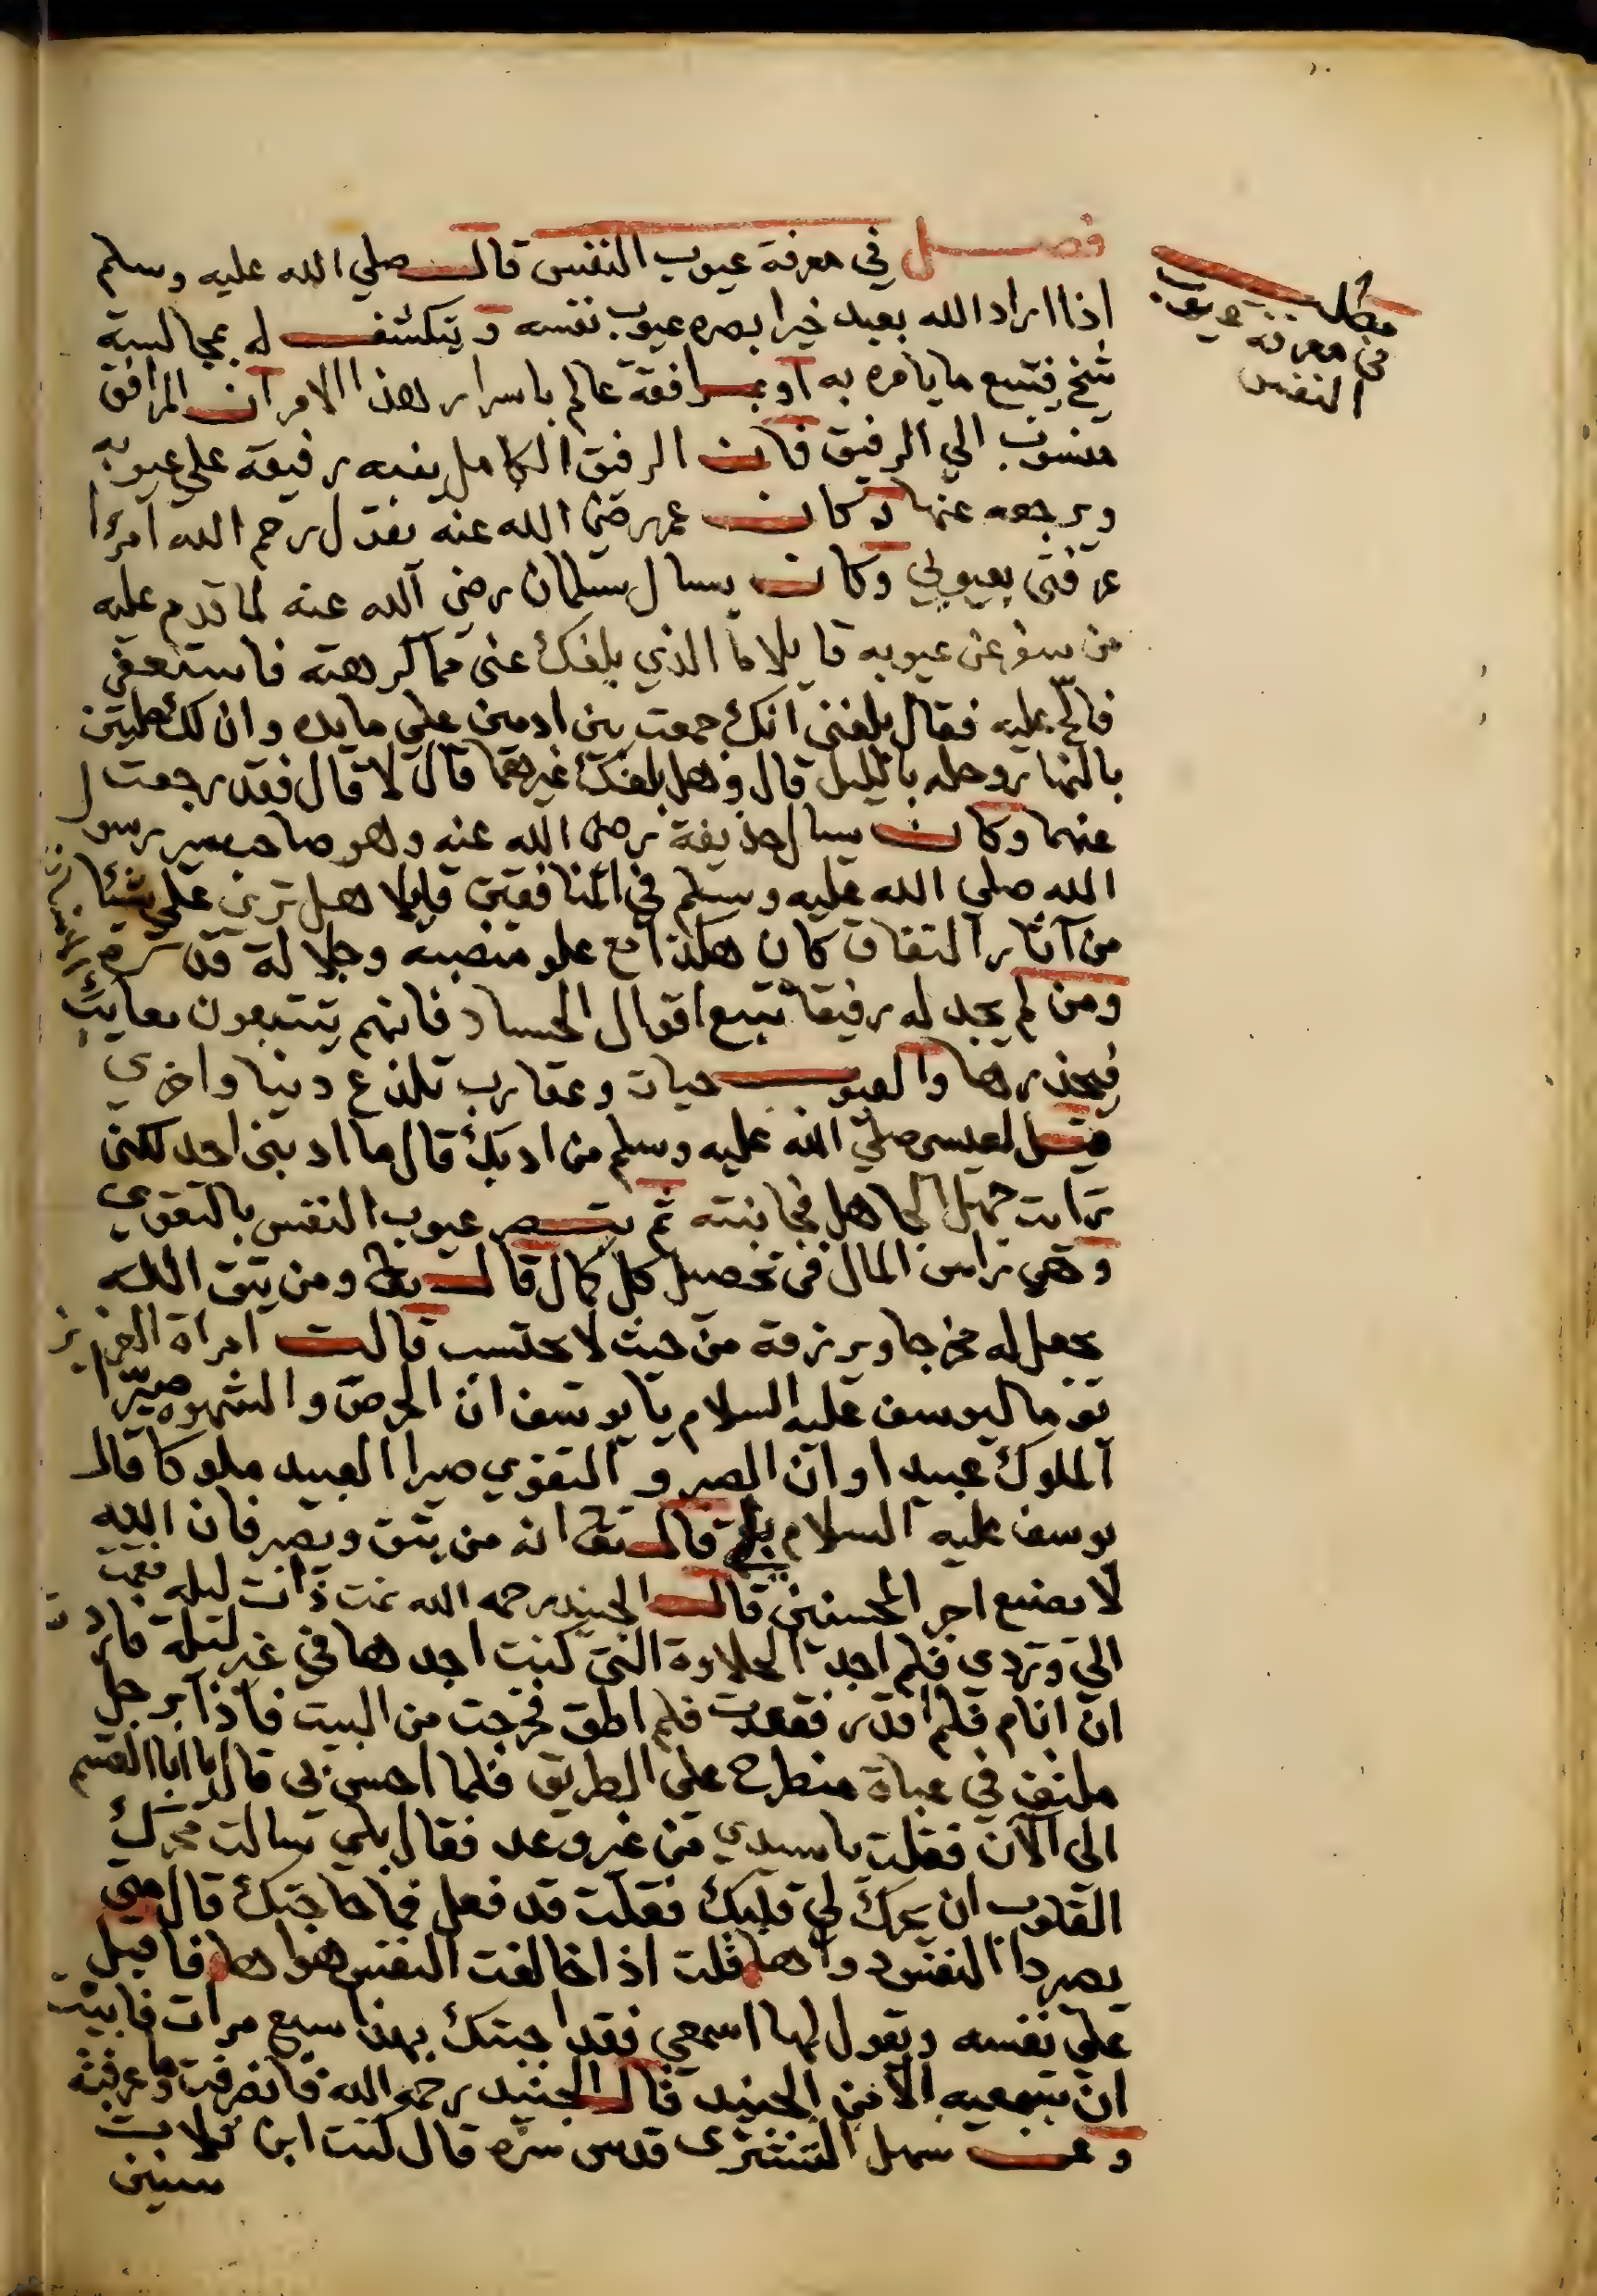 فصل في معرفة عيوب النفس قال صلي الله عليه وسلم
اذا اراد الله بعبد خيرا بصره عيوب نفسه و يتكشف له بمجالسة
شيخ فيتبع ما يامره به او بمرافقة عالم باسرار هذا الامر ان المرافق
منسوب الي الرفيق فان الرفيق الكامل ينبه رفيقه على عيوبه
ويرجعه عنها وكان عمر رضي الله عنه يقول رحم الله امرئا
عرفني بعيوبي وكان يسال سلمان رضي الله عنه لما قدم عليه
من سفر عن عيوبه قايلا ما الذي بلغك عني مما كرهته فاستعفي
فالح عليه فقال بلغني انك جمعت بين ادمين علي مايده وان لك حلتين
بالنهار وحله بالليل قال وهل بلغك غيرهما قال لا قال فقد رجعت
عنهما وكان يسال حذيفة رضي الله عنه وهو صاحب سر رسول
الله صلي الله عليه وسلم في المنافقين قايلا هل تري علي شيئا
من آثار النفاق كان هكذا مع علو منصبه وجلالة قدره
ومن لم يجد له رفيقا تتبع اقوال الحساد فانهم يتتبعون معايبه
فيحذرها والعيوب حيات وعقارب تلدغ دنيا واخري
قيل لعيسي صلي الله عليه وسلم من ادبك قال ما ادبني احد لكني
رايت جهل الجاهل فجانبته ثم تبصر عيوب النفس بالتقوي
وهي راس المال في تحصيل كل كمال قال تعالي ومن يتق الله
يجعل له مخرجا ويرزقه من حيث لا يحتسب قالت امراة العزيز
يوما ليوسف عليه السلام يا يوسف ان الحرص والشهوه صيرا
الملوك عبيدا وان الصبر و التقوي صيرا العبيد ملوكا قال
يوسف عليه السلام بلي قال تعالي انه من يتق ويصبر فان الله
لا يضيع اجر المحسنين قال الجنيد رحمه الله نمت ذات ليله فقمت
الي وردي فلم اجد الحلاوة التي كنت اجدها في غير ليلة فاردت
ان انام فلم اقدر فقعدت فلم اطق فخرجت من البيت فاذا برجل
ملتف في عباة منطرح على الطريق فلما احس بي قال يا ابا القسم
الى الآن فقلت يا سيدي من غير وعد فقال بلي سالت محرك
القلوب ان يحرك لي قلبك فقلت قد فعل فما حاجتك قال متي
يصير داء النفس دواها قلت اذا خالفت النفس هواها فاقبل
علي نفسه ويقول لها اسمعي فقد اجبتك بهذا سبع مرات فابيت
ان تسمعيه الا من الجنيد قال الجنيد رحمه الله فانصرفت وما عرفته
وعن سهل التستري قدس سره قال كنت ابن ثلاث
سنين
مطلب
في معرفة عيوب
النفس